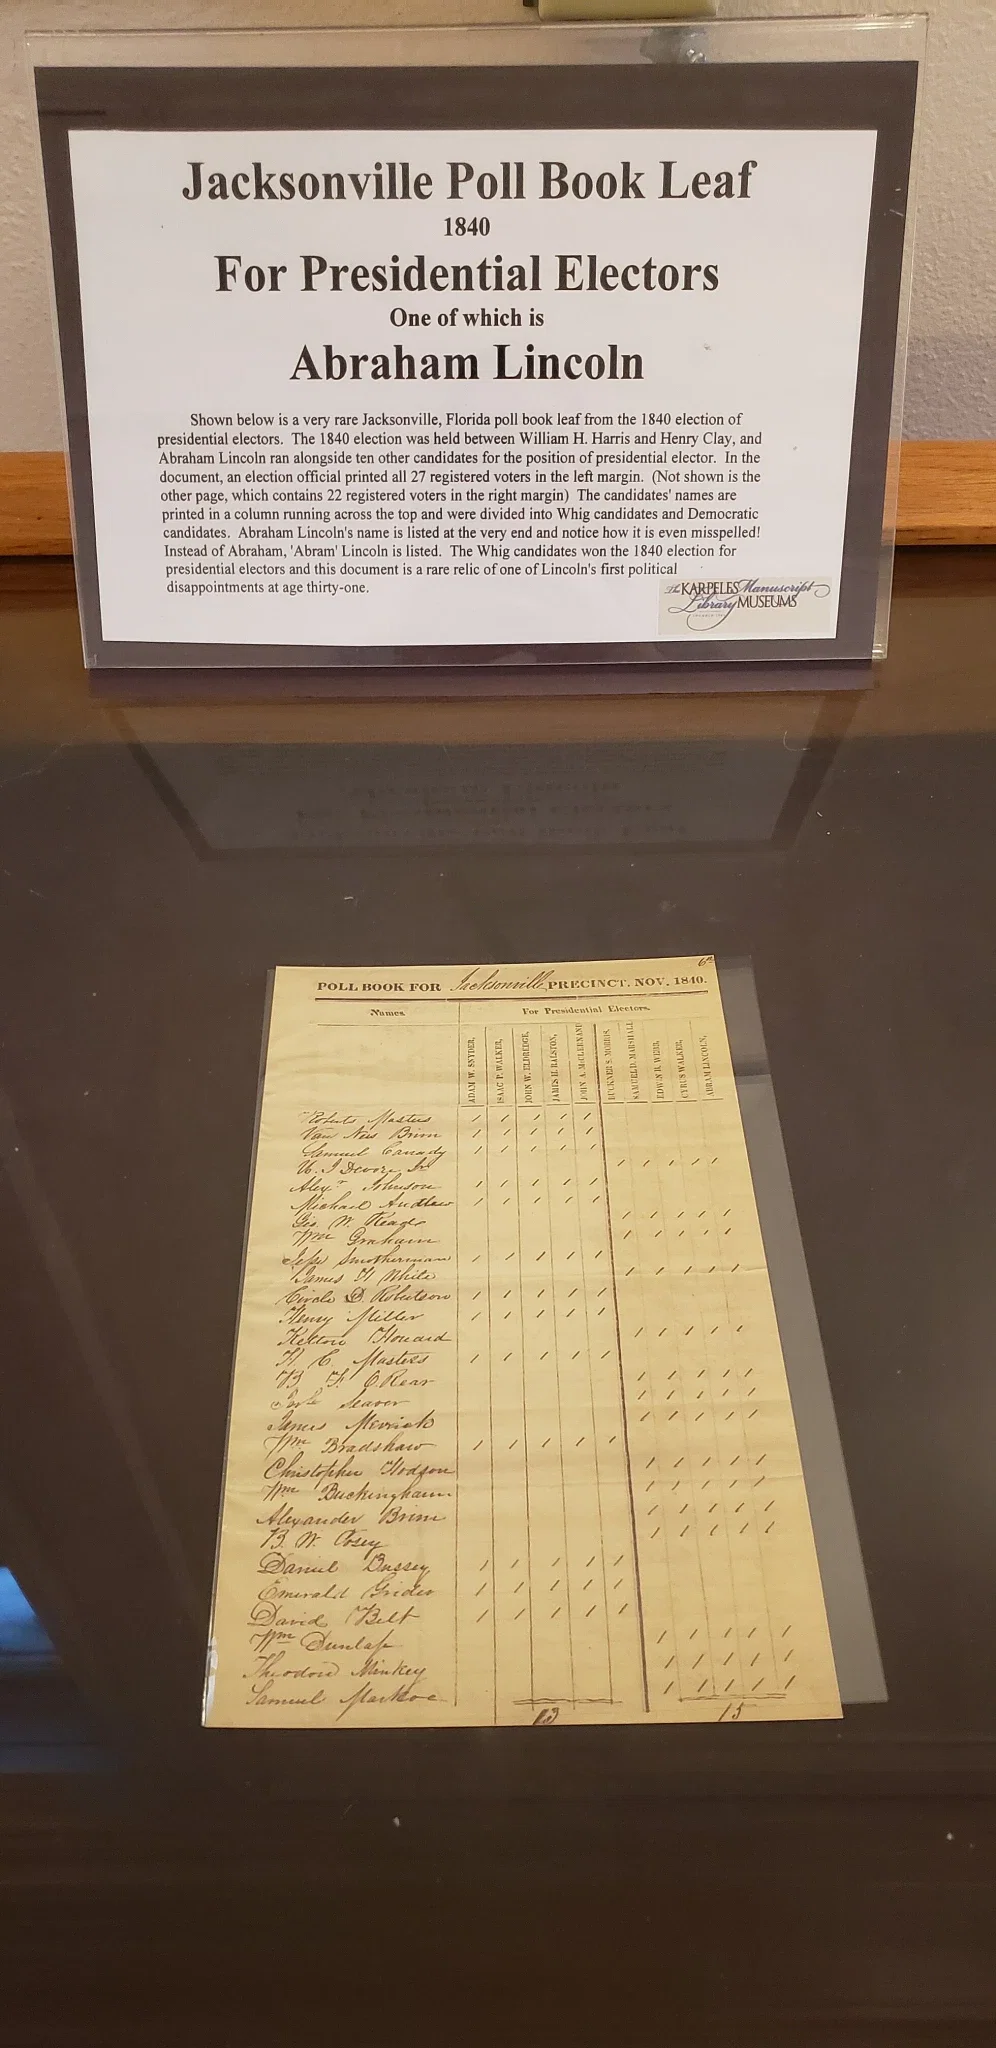 Jacksonville Poll Book Leaf
1840
For Presidential Electors
One of which is
Abraham Lincoln
Shown below is a very rare Jacksonville, Florida poll book leaf from the 1840 election of
presidential electors. The 1840 election was held between William H. Harris and Henry Clay, and
Abraham Lincoln ran alongside ten other candidates for the position of presidential elector. In the
document, an election official printed all 27 registered voters in the left margin. (Not shown is the
other page, which contains 22 registered voters in the right margin) The candidates' names are
printed in a column running across the top and were divided into Whig candidates and Democratic
candidates. Abraham Lincoln's name is listed at the very end and notice how it is even misspelled!
Instead of Abraham, 'Abram' Lincoln is listed. The Whig candidates won the 1840 election for
presidential electors and this document is a rare relic of one of Lincoln's first political
disappointments at age thirty-one.
The KARPELES Manuscript
Library MUSEUMS
POLL BOOK FOR Jacksonville PRECINCT, NOV. 1840.
Names. For Presidential Electors.
ADAM W. SNYDER,
ISAAC P. WALKER,
JOHN W. ELDREDGE,
JAMES H. RALSTON,
JOHN A. McCLERNAND
BUCKNER S. MORRIS,
SAMUEL D. MARSHALL
EDWIN B. WEBB,
CYRUS WALKER,
ABRAM LINCOLN,
Roberts Masters
Van Ness Brim
Samuel Canady
Alexr Johnson
Michael
Geo. W. Read
Wm Graham
Jesse Smotherman
James H White
Circle D. Robertson
Henry Miller
Kelton Howard
H C Masters
B F
Seaver
James Merrick
Wm Bradshaw
Christopher Hodson
Wm Buckingham
Alexander Brim
B. W. Posey
Daniel Bussey
Emerald Grider
David Belt
Wm Dunlap
Minkey
Samuel Markoe
13 15